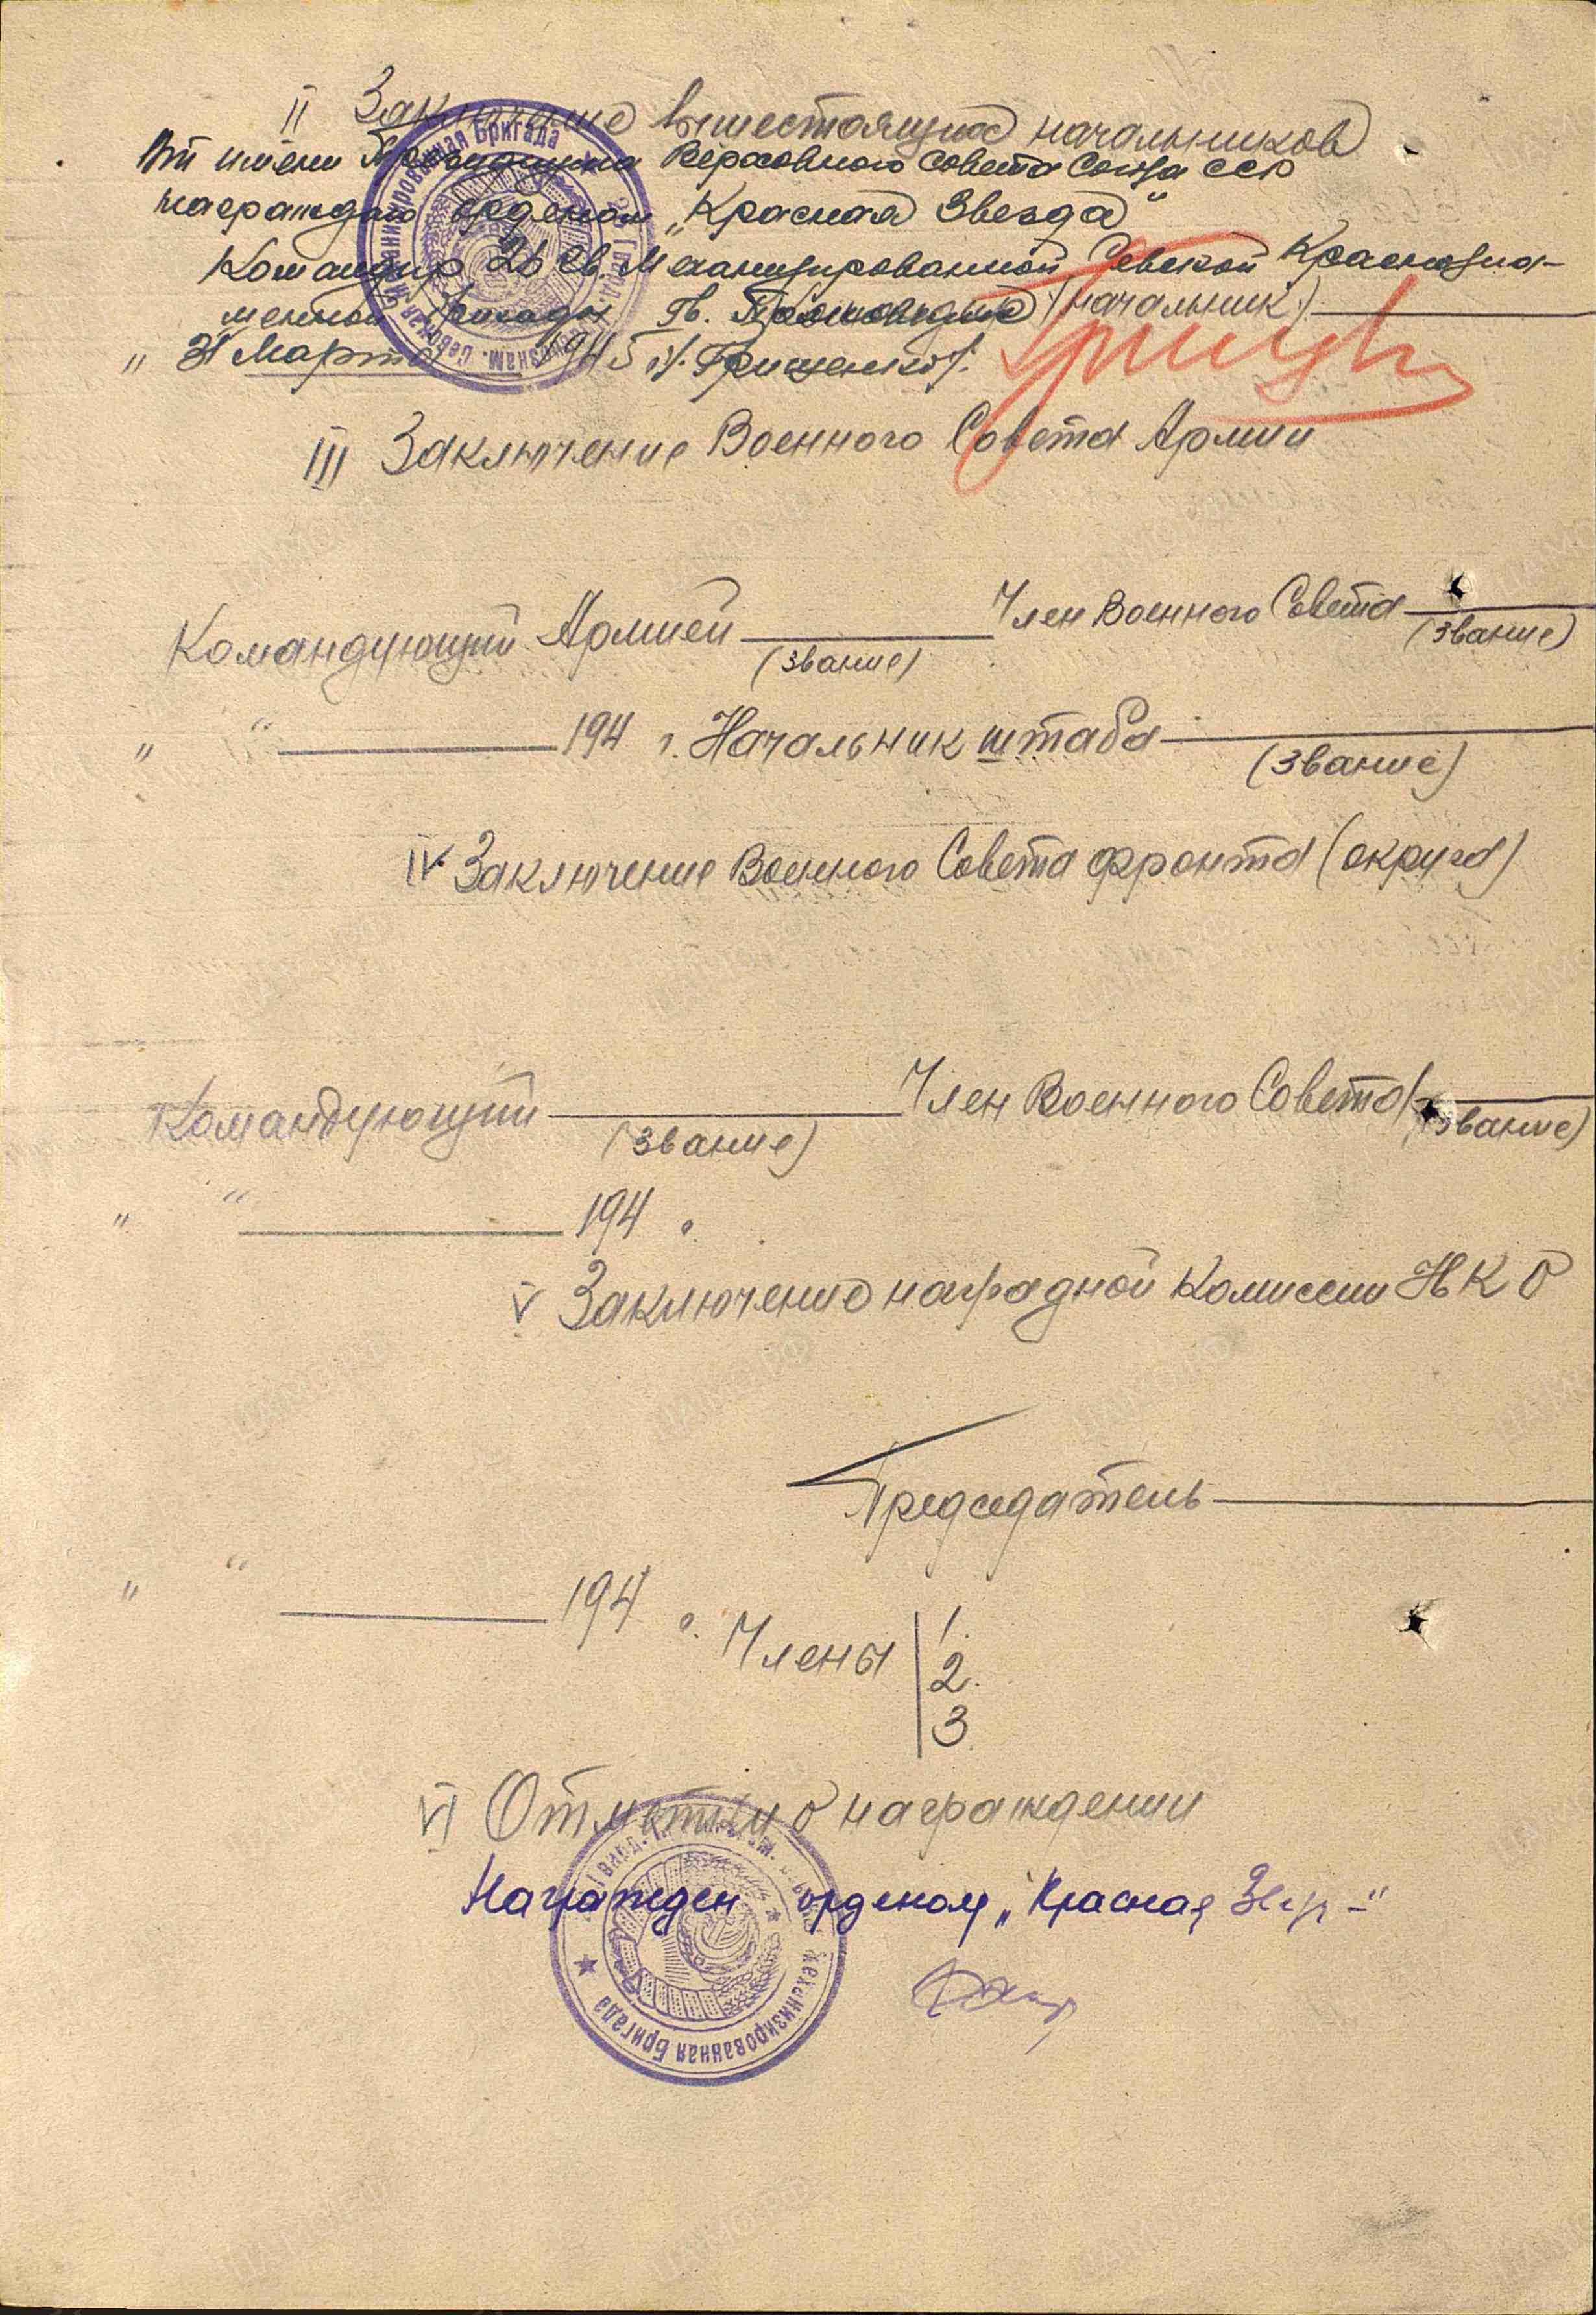 II Заключение вышестоящих начальников
От имени Президиума Верховного Совета Союза ССР
награждаю орденом „Красная Звезда"
Командир 26 гв. Механизированной Севской Краснозна-
менной бригады Гв. Полковник (начальник)
„31 Марта 1945 г. /Грищенко/.
III Заключение Военного Совета Армии
Командующий Армией Член Военного Совета
(звание) (звание)
„ “ 194 г. Начальник штаба
(звание)
IV Заключение Военного Совета фронта (округа)
Командующий Член Военного Совета
(звание) (звание)
„ “ 194 г.
V Заключение наградной Комиссии НКО
Председатель
„ “ 194 г. Члены 1.
2.
3.
VI Отметки о награждении
Награжден орденом „Красная
механизированная бригада